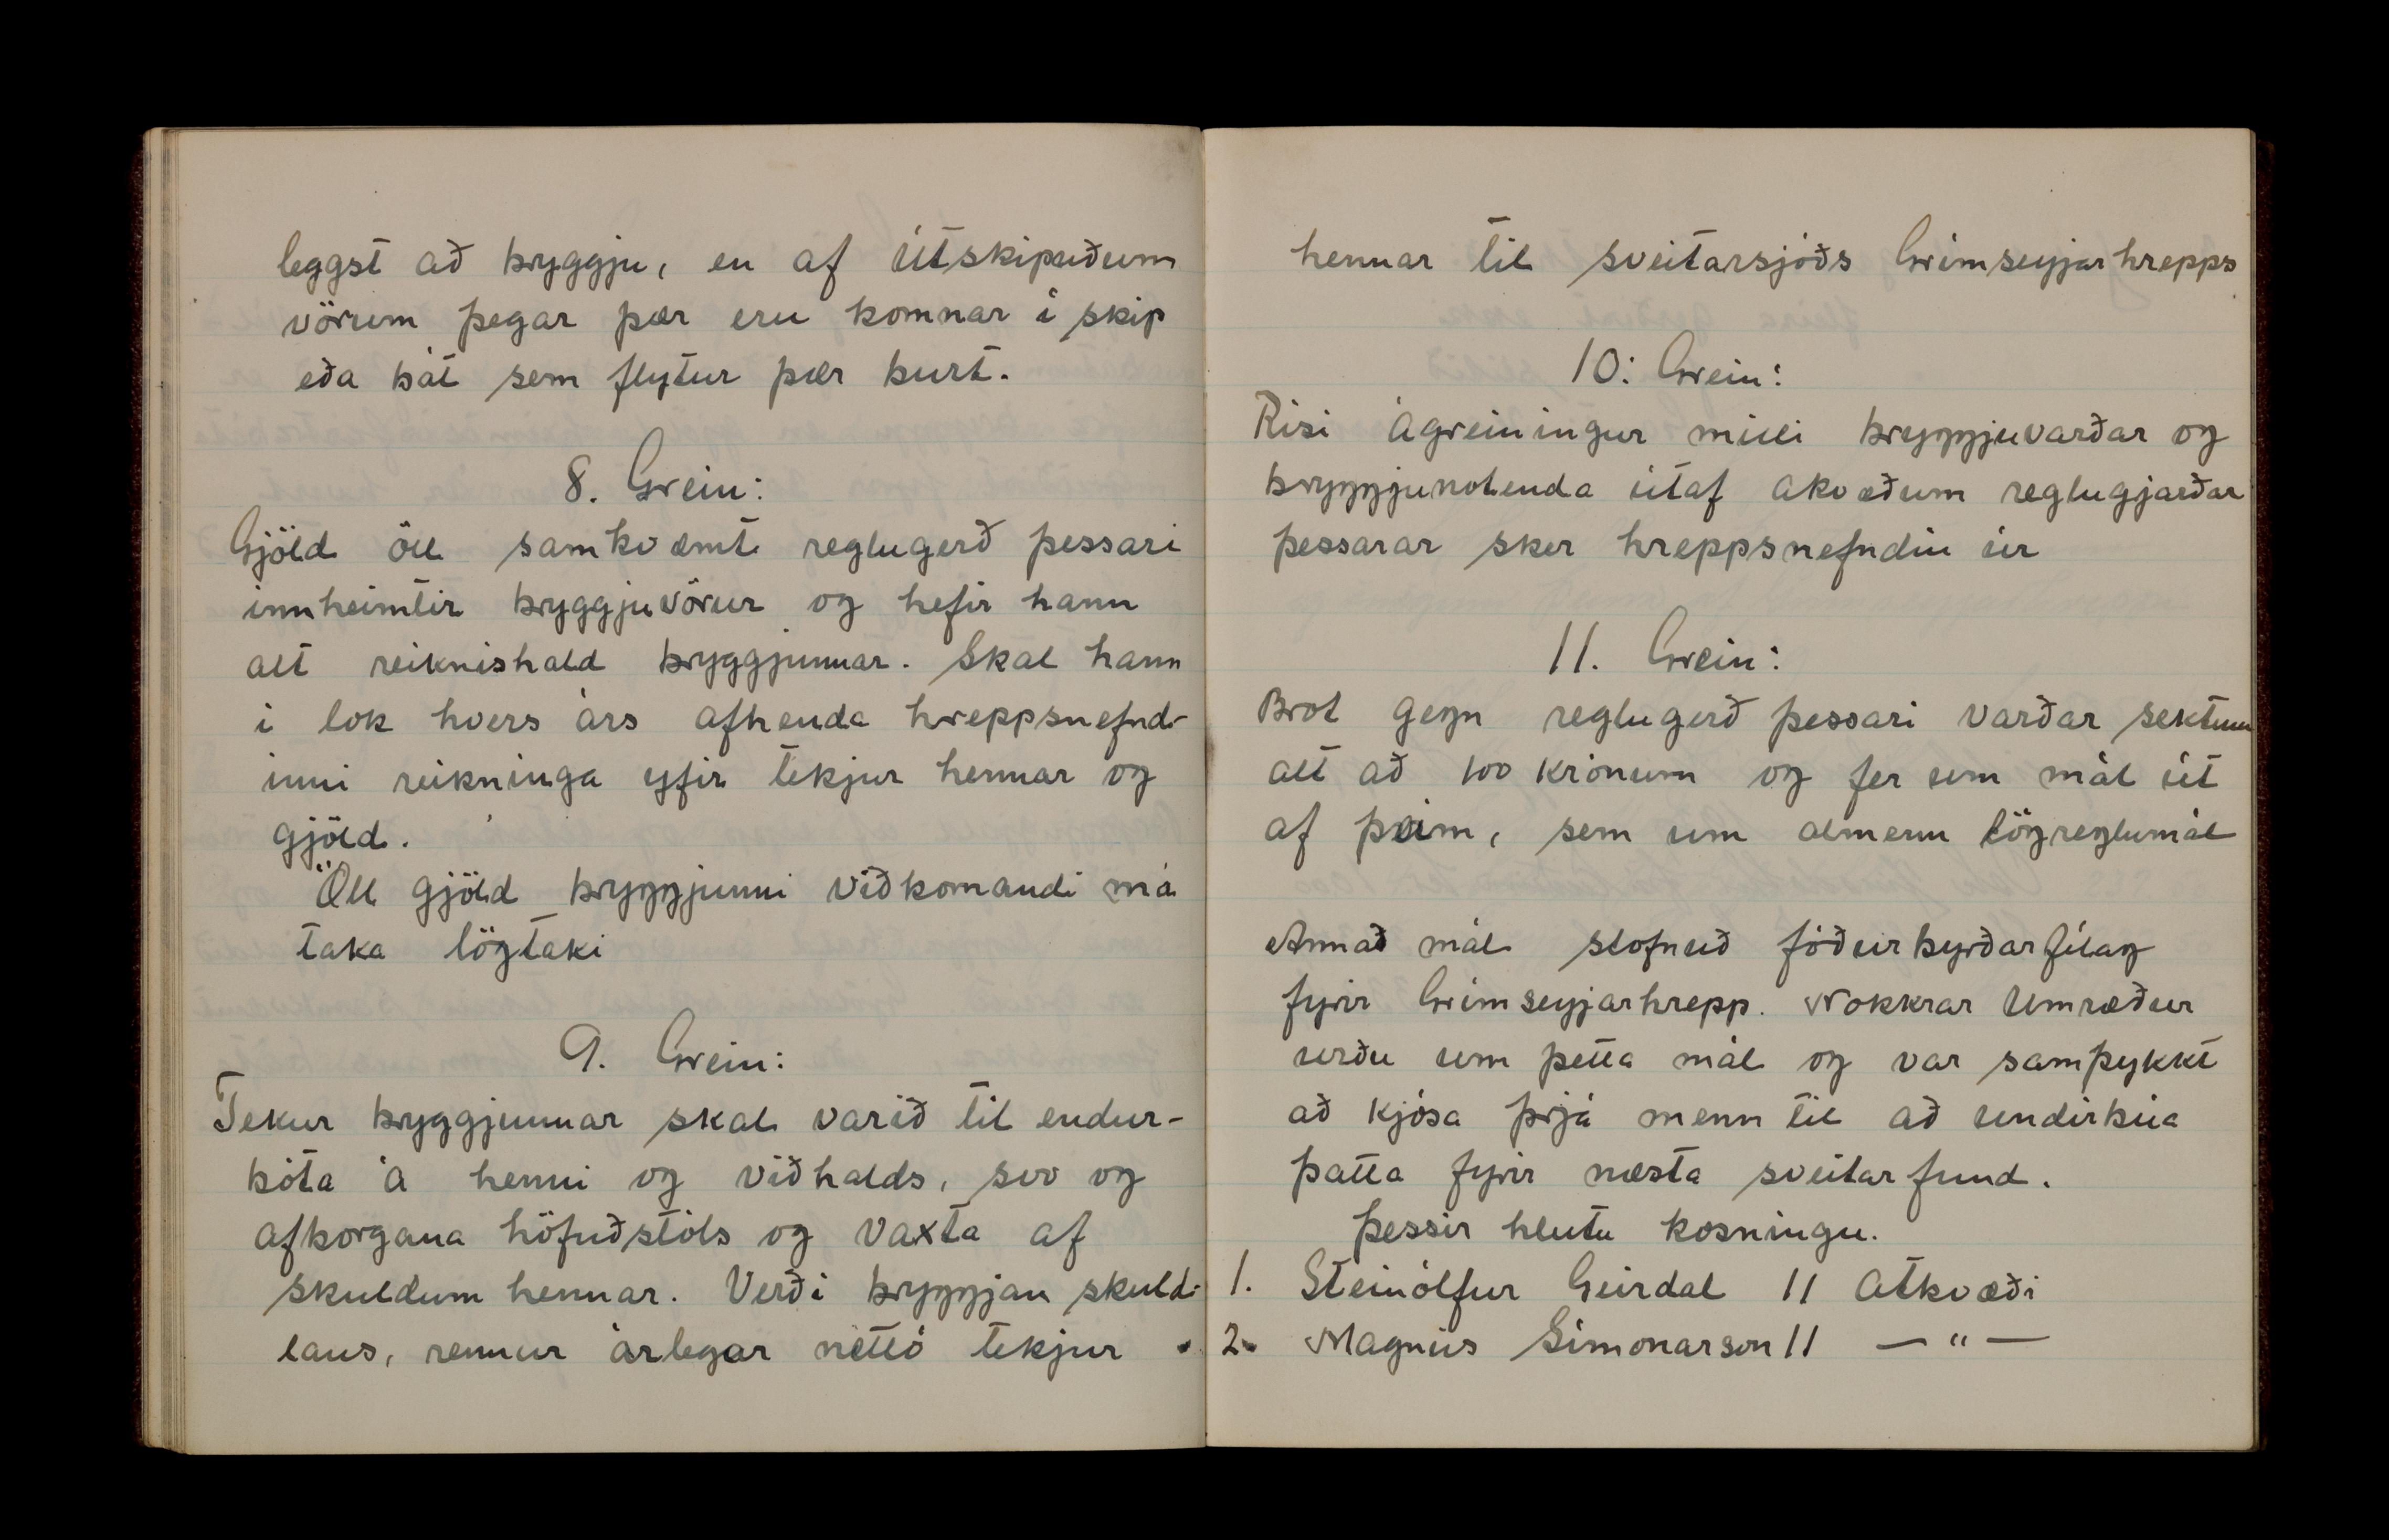 leggst að bryggju, en af útskipuðum
vörum þegar þær eru komnar í skip
eða bát sem flytur þær burt.
8. Grein:
Gjöld öll samkvæmt reglugerð þessari
innheimtir bryggjuvörur og hefir hann
alt reiknishald bryggjunnar. Skal hann
í lok hvers árs afhenda hreppsnefnd-
inni reikninga yfir tekjur hennar og
gjöld.
Öll gjöld bryggjunni viðkomandi má
taka lögtaki
9. Grein:
Tekur bryggjunnar skal varið til endur-
bóta á henni og viðhalds, svo og
afborgana höfuðstóls og vaxta af
skuldum hennar. Verði bryggjan skuld-
laus, rennur árlegar nettó tekjur
hennar til sveitarsjóðs Grímseyjarhrepps
10: Grein:
Rísi ágreiningur milli bryggjuvarðar og
bryggjunotenda útaf ákvæðum reglugjarðar
þessarar sker hreppsnefndin úr
11. Grein:
Brot gegn reglugerð þessari varðar sektum
alt að 100 krónum og fer um mál út
af þeim, sem um almenn lögreglumál
Annað mál stofnuð fóðurbyrðarfélag
fyrir Grímseyjarhrepp. Nokkrar umræður
urðu um þetta mál og var samþykkt
að kjósa þrjá menn til að undirbúa
þatta fyrir næsta sveitarfund.
Þessir hlutu kosningu.
1. Steinólfur Geirdal 11 atkvæði
2. Magnús Símonarson 11 — " —